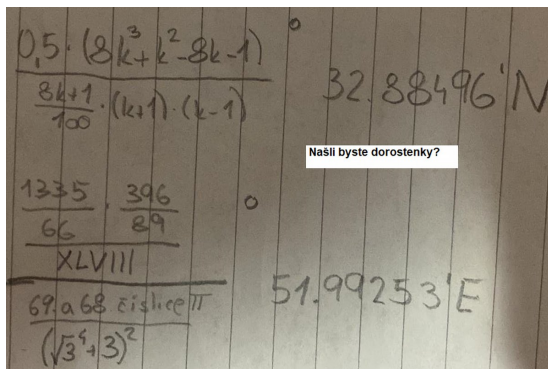 0,5 · (8k³+k²-8k-1)
8k+1
100
·(k+1)·(k-1)
° 32.88496'N
Našli byste dorostenky?
1335 · 396
66 89
XLVIII
69. a 68 číslice π
(√3⁴+3)²
° 51.99253'E